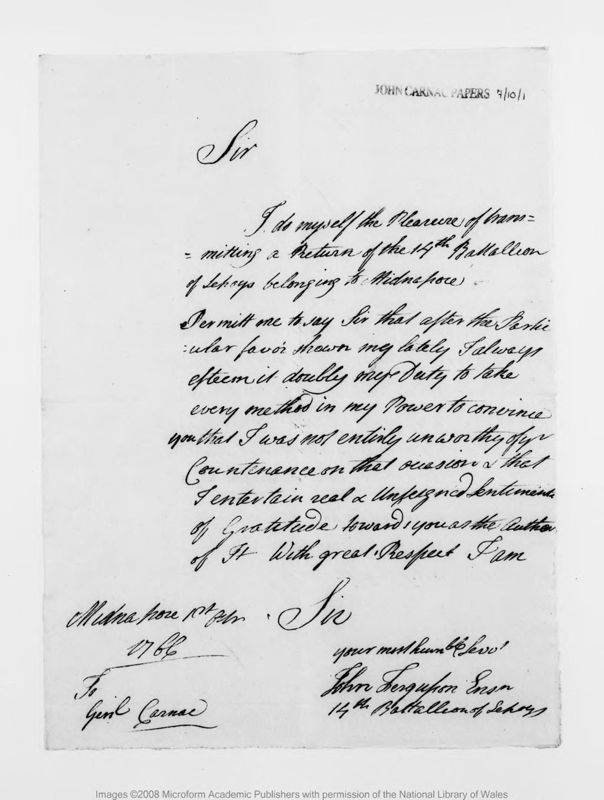 JOHN CARNAC PAPERS 7/10/1
Sir
I do myself the Pleasure of trans=
= mitting a Return of the 14th Battallion
of Sepoys belonging to Midnapore
Permitt me to say Sir that after the Partic
:ular favor shewn me lately I always
esteem it doubly my Duty to take
every method in my Power to convince
you that I was not entirly unworthy of yr
Countenance on that occasion & that
I entertain real & Unfeigned Sentiments
of Gratitude towards you as the Author
of It With great Respect I am
Midnapore 1st
Sir
1766
your most humble Servt
To
John Ferguson Ensn
Genl Carnac
14th Battallion of Sepoys
Images ©2008 Microform Academic Publishers with permission of the National Library of Wales